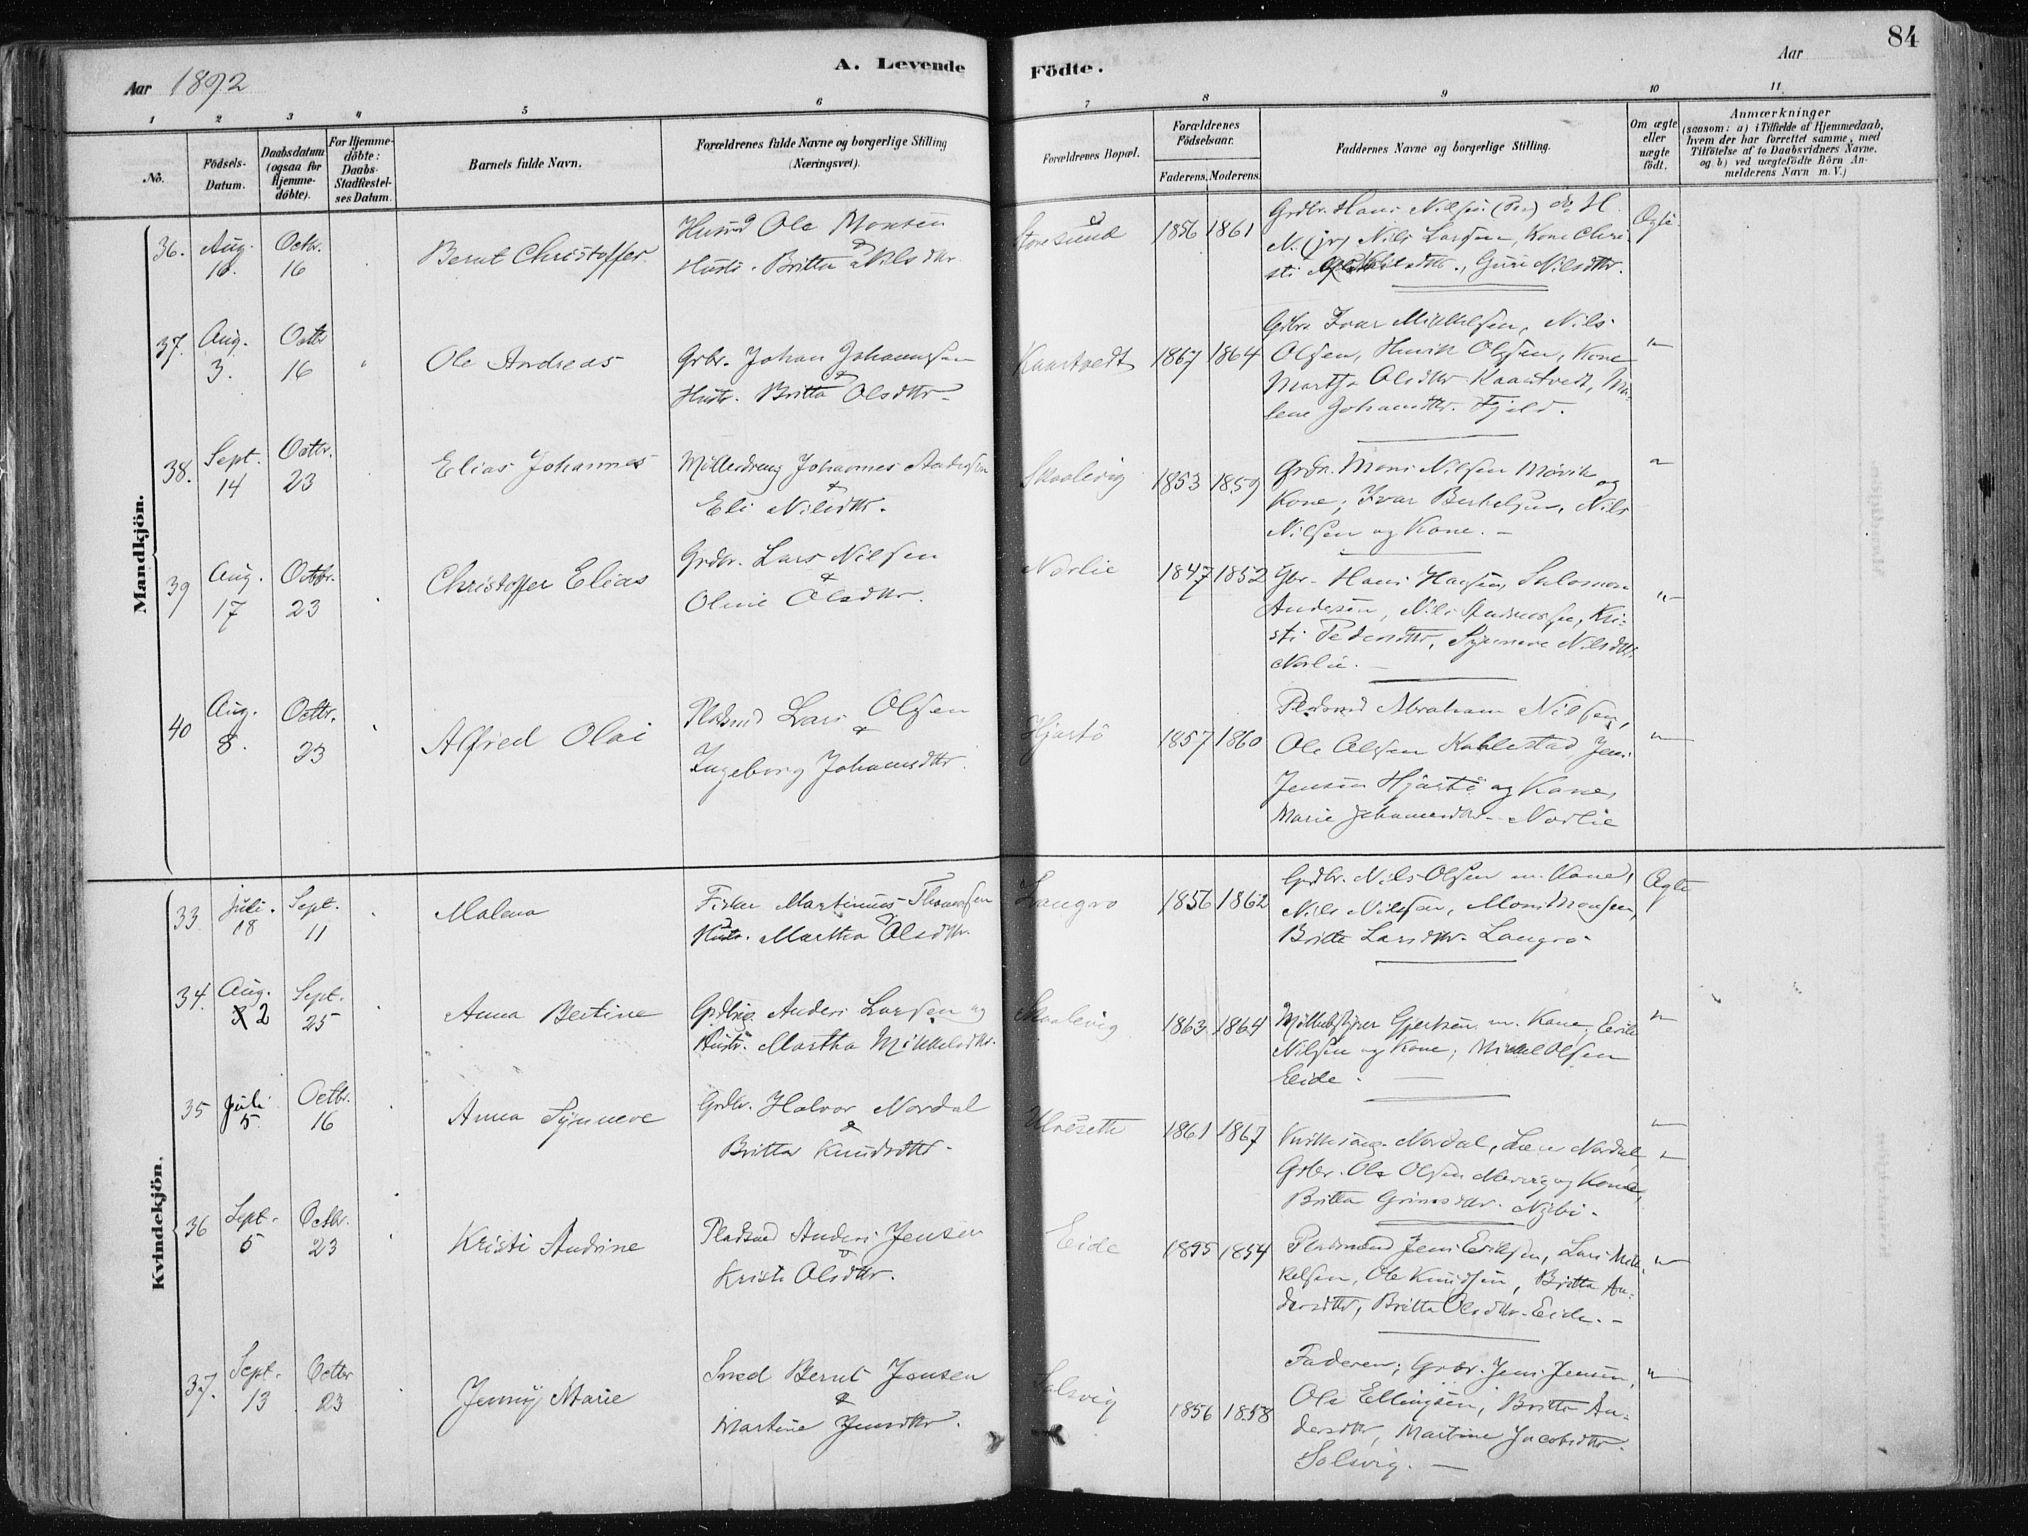 84
Aar 1892
A. Levende Födte.
Aar
1 2 3 4 5 6 7 8 9 10 11
No.
Födsels-Datum.
Daabsdatum (ogsaa for Hjemme-döbte).
For Hjemme-döbte: Daabs-Stadfæstel-ses Datum.
Barnets fulde Navn.
Forældrenes fulde Navne og borgerlige Stilling (Næringsvei).
Forældrenes Bopæl.
Forældrenes Födselsaar.
Faderens. Moderens.
Faddernes Navne og borgerlige Stilling.
Om ægte eller uægte födt.
Anmærkninger
(saasom: a) i Tilfælde af Hjemmedaab, hvem der har forrettet samme, med Tilföielse af to Daabsvidners Navne. og b) ved uægtefödte Börn An-melderens Navn m. V.)
Mandkjön.
36. Aug. 16. Octr. 16
Bernt Christoffer.
Ole Monsen
Hustr. Britta Nilsdtr.
Storesund
1856 1861
Grdbr. Hans Nilsen
Nils Larsen, Kone Chri-
sti , Guri Nilsdtr.
Ægte
37. Aug. 3. Octbr 16
Ole Andreas
Grbr. Johan Johannesen
&
Hustr. Britta Olsdtr.
Kaartvedt
1867 1864
Ivar Mikkelsen, Nils
Olsen, Henrik Olsen, Kone
Martha Olsdtr Kaartvedt,
Johansdtr. Fjeld.
38. Sept. 14 Octbr. 23
Elias Johannes
Mölledreng Johannes Andersen
&
Eli Nilsdtr.
Skaalevig
1853 1859
Grdr. Mons Nilsen Mövik og
Kone; Ivar Berthelsen, Nils
Nilsen og Kone.
39 Aug. 17 Octbr. 23
Christoffer Elias
Grdbr. Lars Nilsen
&
Oline Olsdtr.
Norlie
1847 1852
Gbr. Hans Hansen, Salomon
Andersen, Nils Andreassen, Kri-
sti Pedersdtr, Synneve Nilsdtr
Norlie.
40 Aug. 8. Octbr. 23
Alfred Olai
Pladsmd Lars Olsen
&
Ingeborg Johansdtr.
Hjartö
1857 1860
Pladsmd Abraham Nilsen,
Ole Olsen Kohlestad Jens
Jensen Hjartö og Kone,
Marie Johannesdtr. Norlie
Kvindekjön.
33 Juli. 18 Sept. 11
Malena
Fisker Martinus Thomassen
&
Hustr. Martha Olsdtr.
Langrö
1856 1862
Grdbr. Nils Olsen m. Kone,
Nils Nilssen, Mons Monsen,
Britta Larsdtr. Langrö.
Ægte
34. Aug. 2 Sept. 25
Anna Bertine
Anders Larsen og
Hustr. Martha Mikkelsdtr.
Skaalevig
1863 1864
Möllebestyrer Gjertsen m. Kone, Erik
Nilsen og Kone; Mikkel Olsen
Eide.
35 Juli 5 Octbr. 16
Anna Synneve
Grdbr. Halvor Nordal
&
Britta Knudsdtr.
Ulveseth
1861 1867
Nordal, Nordal,
Grbr. Ole Olsen og Kone,
Britta Grimsdtr.
36 Sept. 5 Octbr. 23
Kristi Andrine
Pladsmd Anders Jensen
&
Kristi Olsdtr.
Eide
1855 1854
Pladsmand Jens Eriksen, Lars Mik-
kelsen, Ole Knudsen, Britta An-
dersdtr, Britta Olsdtr. Eide.
37. Sept. 13 Octbr 23
Jenny Marie
Smed Bernt Jensen
&
Martine Jensdtr.
Solsvig
1856 1858
Faderen; Grbr. Jens Jensen,
Ole Ellingsen, Britta An-
dersdtr, Martine Jacobsdtr.
Solsvig.